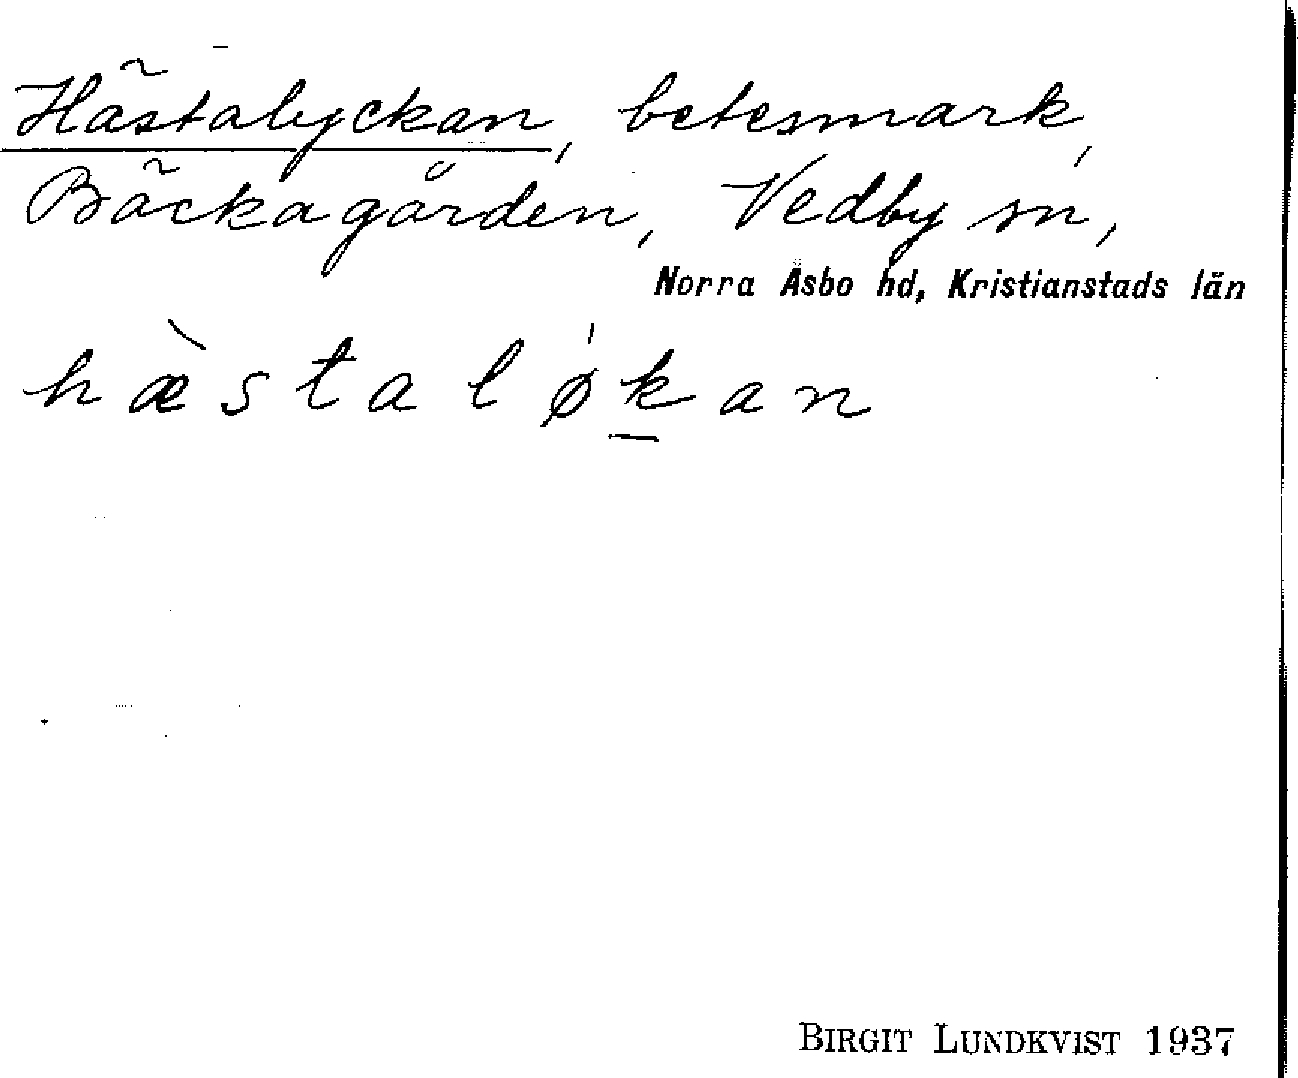 Hästalyckan, betesmark,
Bäckagården, Vedby sn,
Norra Åsbo hd, Kristianstads län
hæ̀stalǿk̲an
BIRGIT LUNDKVIST 1937